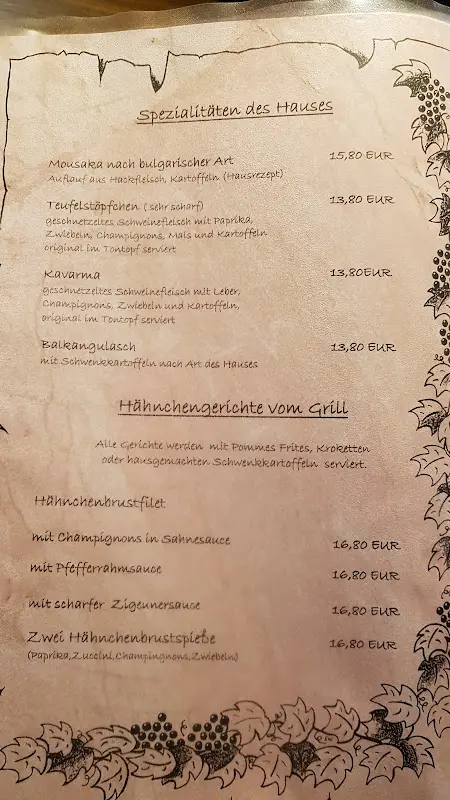 Spezialitäten des Hauses
Mousaka nach bulgarischer Art 15,80 EUR
Auflauf aus Hackfleisch, Kartoffeln (Hausrezept)
Teufelstöpfchen ( sehr scharf) 13,80 EUR
geschnetzeltes Schweinefleisch mit Paprika,
Zwiebeln, Champignons, Mais und Kartoffeln
original im Tontopf serviert
Kavarma 13,80EUR
geschnetzeltes Schweinefleisch mit Leber,
Champignons, Zwiebeln und Kartoffeln,
original im Tontopf serviert
Balkangulasch 13,80 EUR
mit Schwenkkartoffeln nach Art des Hauses
Hähnchengerichte vom Grill
Alle Gerichte werden mit Pommes Frites, Kroketten
oder hausgemachten Schwenkkartoffeln serviert.
Hähnchenbrustfilet
mit Champignons in Sahnesauce 16,80 EUR
mit Pfefferrahmsauce 16,80 EUR
mit scharfer Zigeunersauce 16,80 EUR
Zwei Hähnchenbrustspieße 16,80 EUR
(Paprika,Zuccini,Champingnons,Zwiebeln)